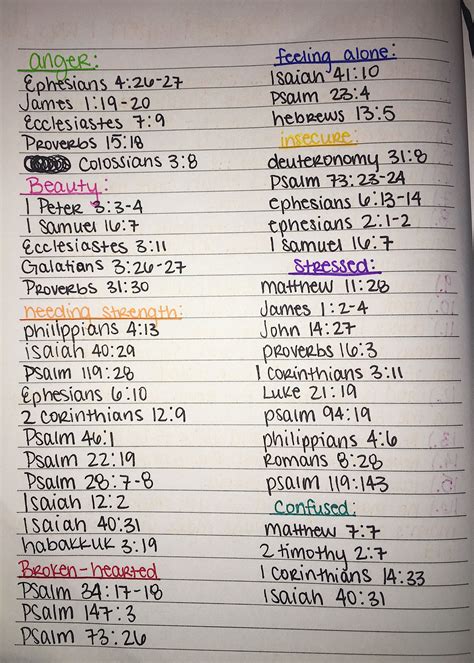 anger:
Ephesians 4:26-27
James 1:19-20
Ecclesiastes 7:9
Proverbs 15:18
Colossians 3:8
Beauty:
1 Peter 3:3-4
1 Samuel 16:7
Ecclesiastes 3:11
Galatians 3:26-27
Proverbs 31:30
needing strength:
philippians 4:13
isaiah 40:29
Psalm 119:28
Ephesians 6:10
2 Corinthians 12:9
Psalm 46:1
Psalm 22:19
Psalm 28:7-8
Isaiah 12:2
Isaiah 40:31
habakkuk 3:19
Broken-hearted
Psalm 34:17-18
Psalm 147:3
Psalm 73:26
feeling alone:
Isaiah 41:10
Psalm 23:4
hebrews 13:5
insecure:
deuteronomy 31:8
Psalm 73:23-24
ephesians 6:13-14
ephesians 2:1-2
1 Samuel 16:7
Stressed:
matthew 11:28
James 1:2-4
John 14:27
proverbs 16:3
1 Corinthians 3:11
Luke 21:19
psalm 94:19
philippians 4:6
Romans 8:28
psalm 119:143
Confused:
matthew 7:7
2 timothy 2:7
1 Corinthians 14:33
Isaiah 40:31